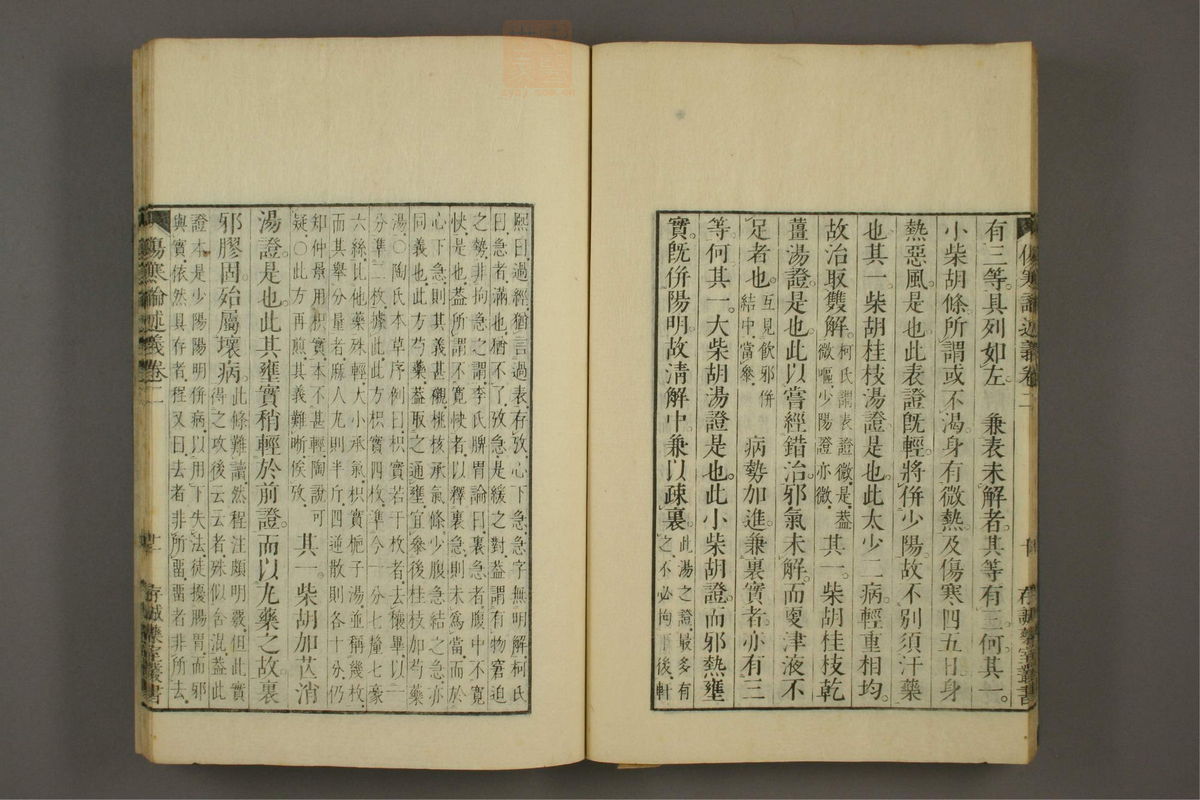 有三等具列如左　兼表未解者其等有三何其一。
小柴胡條所謂或不渴身有微熱及傷寒四五日身
熱惡風是也此表證既輕將併少陽故不別須汗藥
也其一柴胡桂枝湯證是也此太少二病輕重相均。
故治取雙解。柯氏謂表證微是蓋
微嘔少陽證亦微　其一柴胡桂枝乾
薑湯證是也此以嘗經錯治邪氣未解而更津液不
足者也互見飲邪併
結中當參　病勢加進兼裏實者亦有三
等何其一大柴胡湯證是也此小柴胡證而邪熱壅
實既併陽明故清解中兼以疎裏此湯之證最多有
之不必拘下後軒
傷寒論述義卷二　十　存誠藥室叢書
熙曰過經猶言過表存攷心下急急字無明解柯氏
曰急者滿也猶不了攷急是緩之對蓋謂有物窘迫
之勢非拘急之謂李氏脾胃論曰裏急者腹中不寬
快是也蓋所謂不寬快者以釋裏急則未爲當而於
心下急則其義甚襯桃核承氣條少腹急結之急亦
同義也此方芍藥蓋取之通壅宜參後桂枝加芍藥
湯○陶氏本草序例曰枳實若干枚者去穰畢以一
分準二枚據此此方枳實四枚準今一分七釐七豪
六絲比他藥殊輕大小承氣枳實梔子湯並稱幾枚
而其舉分量者麻人丸則半斤四逆散則各十分仍
知仲景用枳實本不甚輕陶說可
疑○此方再煎其義難晰候攷　其一柴胡加芒消
湯證是也此其壅實稍輕於前證而以丸藥之故裏
邪膠固殆屬壞病此條難讀然程注頗明覈但此實
得之攻後云云者殊似含混蓋此
證本是少陽陽明併病以用下失法徒擾腸胃而邪
與實依然具存者程又曰去者非所留留者非所去
傷寒論述義卷二　十一　存誠藥室叢書